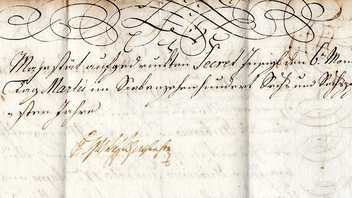 Majestät aufgedruckten Secret Insigel den 6. Mon
Tag Martii im Siebenzehenhundert Sechs und Sechzig
sten Jahre